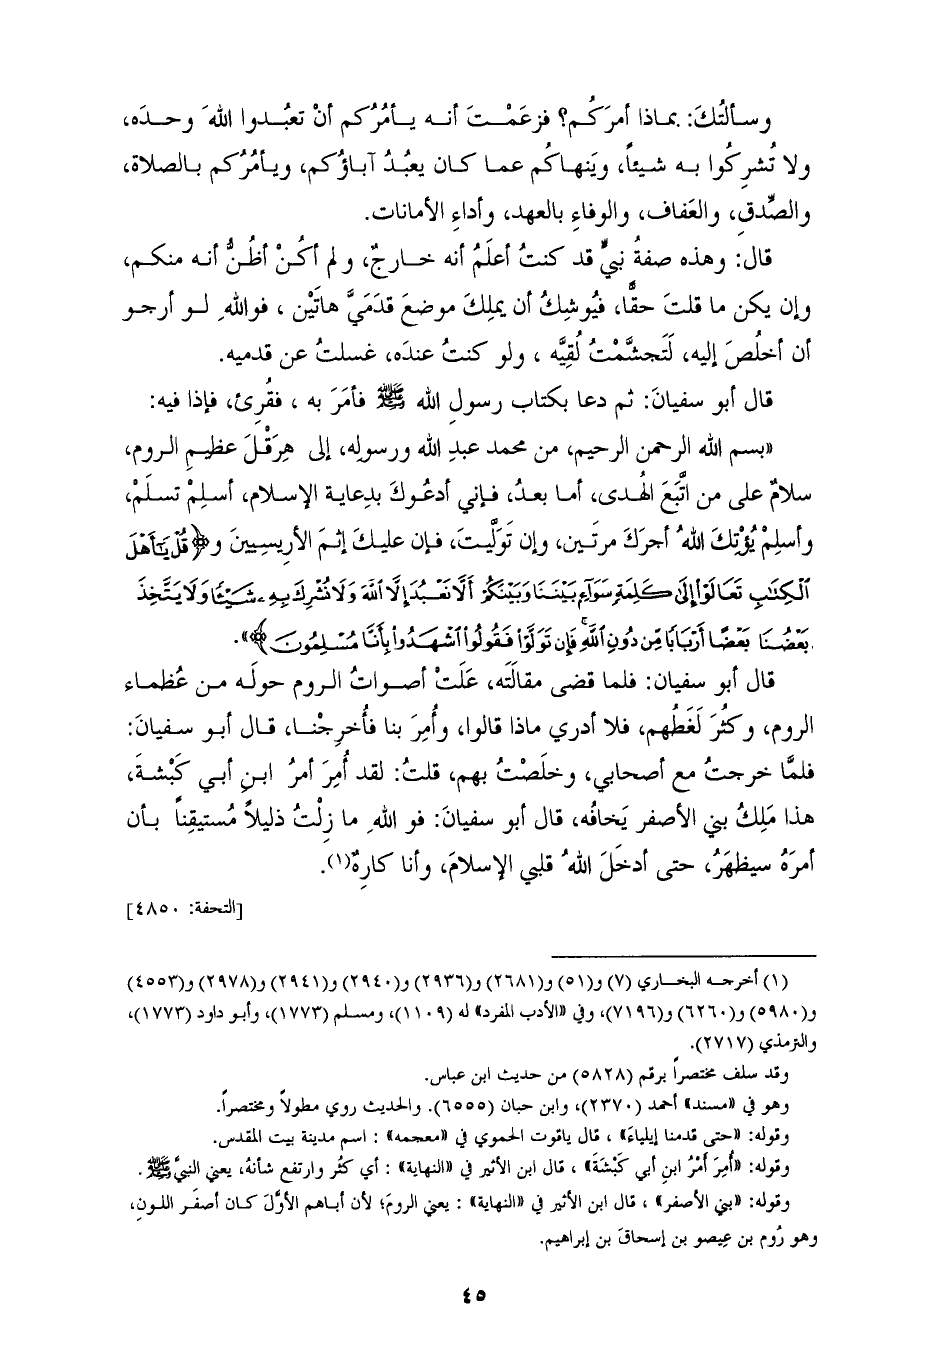 وسألتُكَ: بماذا أمرَكُم؟ فزعَمْتَ أنه يأمُرُكم أنْ تعبُدوا اللهَ وحدَه،
ولا تُشرِكُوا به شيئاً، ويَنهاكُم عما كان يعبُدُ آباؤكم، ويأمُرُكم بالصلاة،
والصِّدقِ، والعَفافِ، والوفاءِ بالعهد، وأداءِ الأمانات.
قال: وهذه صفةُ نبيٍّ قد كنتُ أعلَمُ أنه خارجٌ، ولم أكُنْ أظُنُّ أنه منكم،
وإن يكن ما قلتَ حقًّا، فيُوشِكُ أن يملِكَ موضعَ قدَمَيَّ هاتَيْن ، فواللهِ لو أرجو
أن أخلُصَ إليه، لَتَجشَّمْتُ لُقِيَّه ، ولو كنتُ عندَه، غسلتُ عن قدميه.
قال أبو سفيانَ: ثم دعا بكتاب رسولِ الله ﷺ فأمَرَ به ، فقُرِئ، فإذا فيه:
«بسم الله الرحمن الرحيم، من محمد عبدِ الله ورسولِه، إلى هِرَقْلَ عظيمِ الروم،
سلامٌ على من اتَّبَعَ الهُدى، أما بعدُ، فإني أدعُوكَ بدِعاية الإسلام، أسلِمْ تسلَمْ،
وأسلِمْ يُؤْتِكَ اللهُ أجرَكَ مرتَين، وإن تَولَّيتَ، فإن عليكَ إثمَ الأريسِيين و﴿قُلْ يَٰٓأَهْلَ
ٱلْكِتَٰبِ تَعَالَوْا۟ إِلَىٰ كَلِمَةٍ سَوَآءٍۭ بَيْنَنَا وَبَيْنَكُمْ أَلَّا نَعْبُدَ إِلَّا ٱللَّهَ وَلَا نُشْرِكَ بِهِۦ شَيْـًٔا وَلَا يَتَّخِذَ
بَعْضُنَا بَعْضًا أَرْبَابًا مِّن دُونِ ٱللَّهِ ۚ فَإِن تَوَلَّوْا۟ فَقُولُوا۟ ٱشْهَدُوا۟ بِأَنَّا مُسْلِمُونَ﴾».
قال أبو سفيان: فلما قضى مقالَتَه، عَلَتْ أصواتُ الروم حولَه من عُظماء
الروم، وكثُرَ لَغَطُهم، فلا أدري ماذا قالوا، وأُمِرَ بنا فأُخرِجْنا، قال أبو سفيانَ:
فلمَّا خرجتُ مع أصحابي، وخلَصْتُ بهم، قلتُ: لقد أُمِرَ أمرُ ابنِ أبي كَبْشةَ،
هذا مَلِكُ بني الأصفر يَخافُه، قال أبو سفيانَ: فو اللهِ ما زِلْتُ ذليلاً مُستيقِناً بأن
أمرَهُ سيظهَرُ، حتى أدخلَ اللهُ قلبي الإسلامَ، وأنا كارِهٌ(١).
[التحفة: ٤٨٥٠]
(١) أخرجه البخاري (٧) و(٥١) و(٢٦٨١) و(٢٩٣٦) و(٢٩٤٠) و(٢٩٤١) و(٢٩٧٨) و(٤٥٥٣)
و(٥٩٨٠) و(٦٢٦٠) و(٧١٩٦)، وفي «الأدب المفرد» له (١١٠٩)، ومسلم (١٧٧٣)، وأبو داود (١٧٧٣)،
والترمذي (٢٧١٧).
وقد سلف مختصراً برقم (٥٨٢٨) من حديث ابن عباس.
وهو في «مسند» أحمد (٢٣٧٠)، وابن حبان (٦٥٥٥). والحديث روي مطولاً ومختصراً.
وقوله: «حتى قدمنا إيلياءَ» ، قال ياقوت الحموي في «معجمه» : اسم مدينة بيت المقدس.
وقوله: «أُمِرَ أمْرُ ابنِ أبي كَبْشَةَ» ، قال ابن الأثير في «النهاية» : أي كثُر وارتفع شأنهُ، يعني النبيَّ ﷺ .
وقوله: «بني الأصفر» ، قال ابن الأثير في «النهاية» : يعني الرومَ؛ لأن أباهم الأوَّلَ كان أصفَر اللون،
وهو رُوم بن عِيصو بن إسحاقَ بن إبراهيم.
٤٥